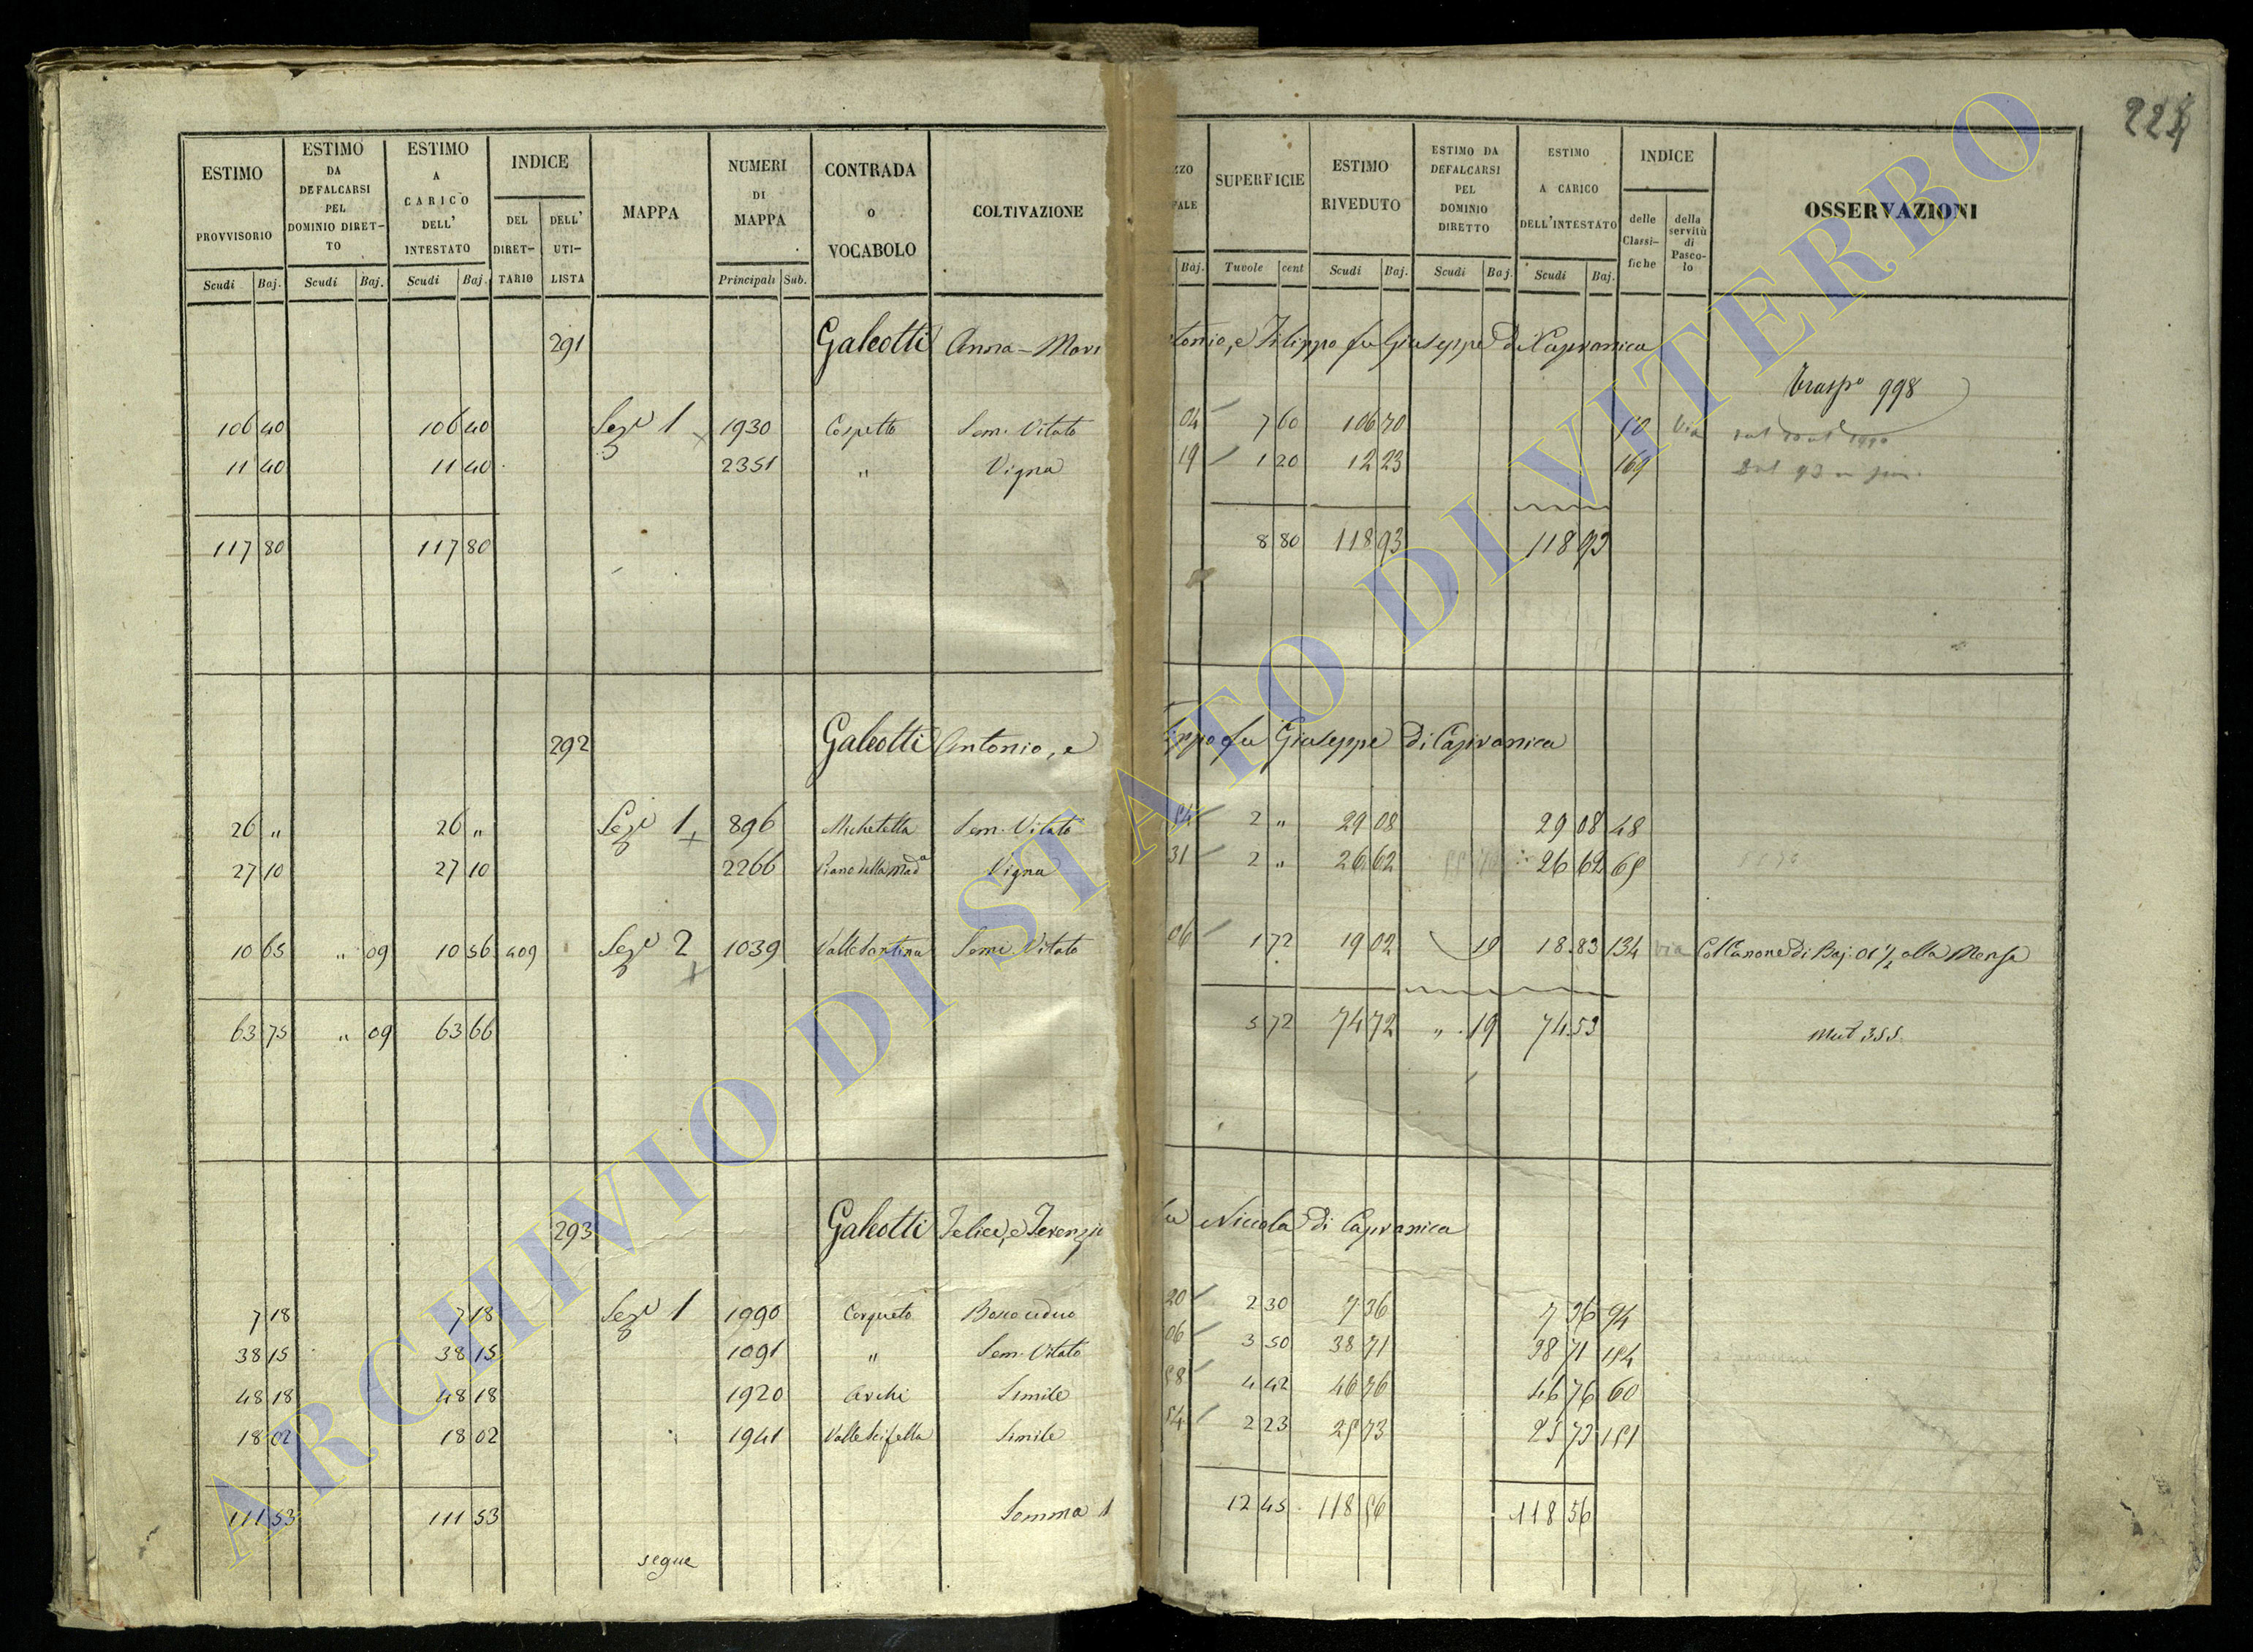 224
ESTIMO PROVVISORIO Scudi Baj.
ESTIMO DA DEFALCARSI PEL DOMINIO DIRET-TO Scudi Baj.
ESTIMO A CARICO DELL' INTESTATO Scudi Baj.
INDICE DEL DIRET-TARIO DELL' UTI-LISTA
MAPPA
NUMERI DI MAPPA Principali Sub.
CONTRADA o VOCABOLO
COLTIVAZIONE
ZZO FALE Baj.
SUPERFICIE Tuvole cent
ESTIMO RIVEDUTO Scudi Baj.
ESTIMO DA DEFALCARSI PEL DOMINIO DIRETTO Scudi Baj.
ESTIMO A CARICO DELL'INTESTATO Scudi Baj.
INDICE delle Classi-fiche della servitù di Pasco-lo
OSSERVAZIONI
291 Galeotti Anna-Mari tonio, e Filippo fu Giuseppe di Capranica
Trasp° 998
106 40 106 40 Sez.e 1 1930 Cospetto Sem. Vitato 04 7 60 106 70 Via
11 40 11 40 2351 " Vigna 19 1 20 12 23 169
117 80 117 80 8 80 118 93 118 93
292 Galeotti Antonio, e ippo fu Giuseppe di Capranica
26 " 26 " Sez.e 1 896 Micheletta Sem. Vitato 54 2 " 29 08 29 08 48
27 10 27 10 2266 Piano della Mad.a Vigna 31 2 " 26 62 26 62 65
10 65 " 09 10 56 409 Sez.e 2 1039 Valle Santina Semi. Vitato 06 1 72 19 02 19 18.83 134 Via Col Canone di Baj. 01 1/2 alla Mensa
63 75 " 09 63 66 5 72 74 72 " 19 74.53 Mut 355
293 Galeotti Felice, e Terenzio fu Niccola di Capranica
7 18 7 18 Sez.e 1 1990 Cerqueto Bosco ceduo 20 2 30 7 36 7 36 94
38 15 38 15 1091 " Sem. Vitato 06 3 50 38 71 38 71 154
48 18 48 18 1920 Archi Simile 58 4 42 46 76 46 76 60
18 02 18 02 1941 Valle Scifella Simile 54 2 23 25 73 25 73 151
111 53 111 53 Somma 12 45 118 56 118 56
segue
ARCHIVIO DI STATO DI VITERBO